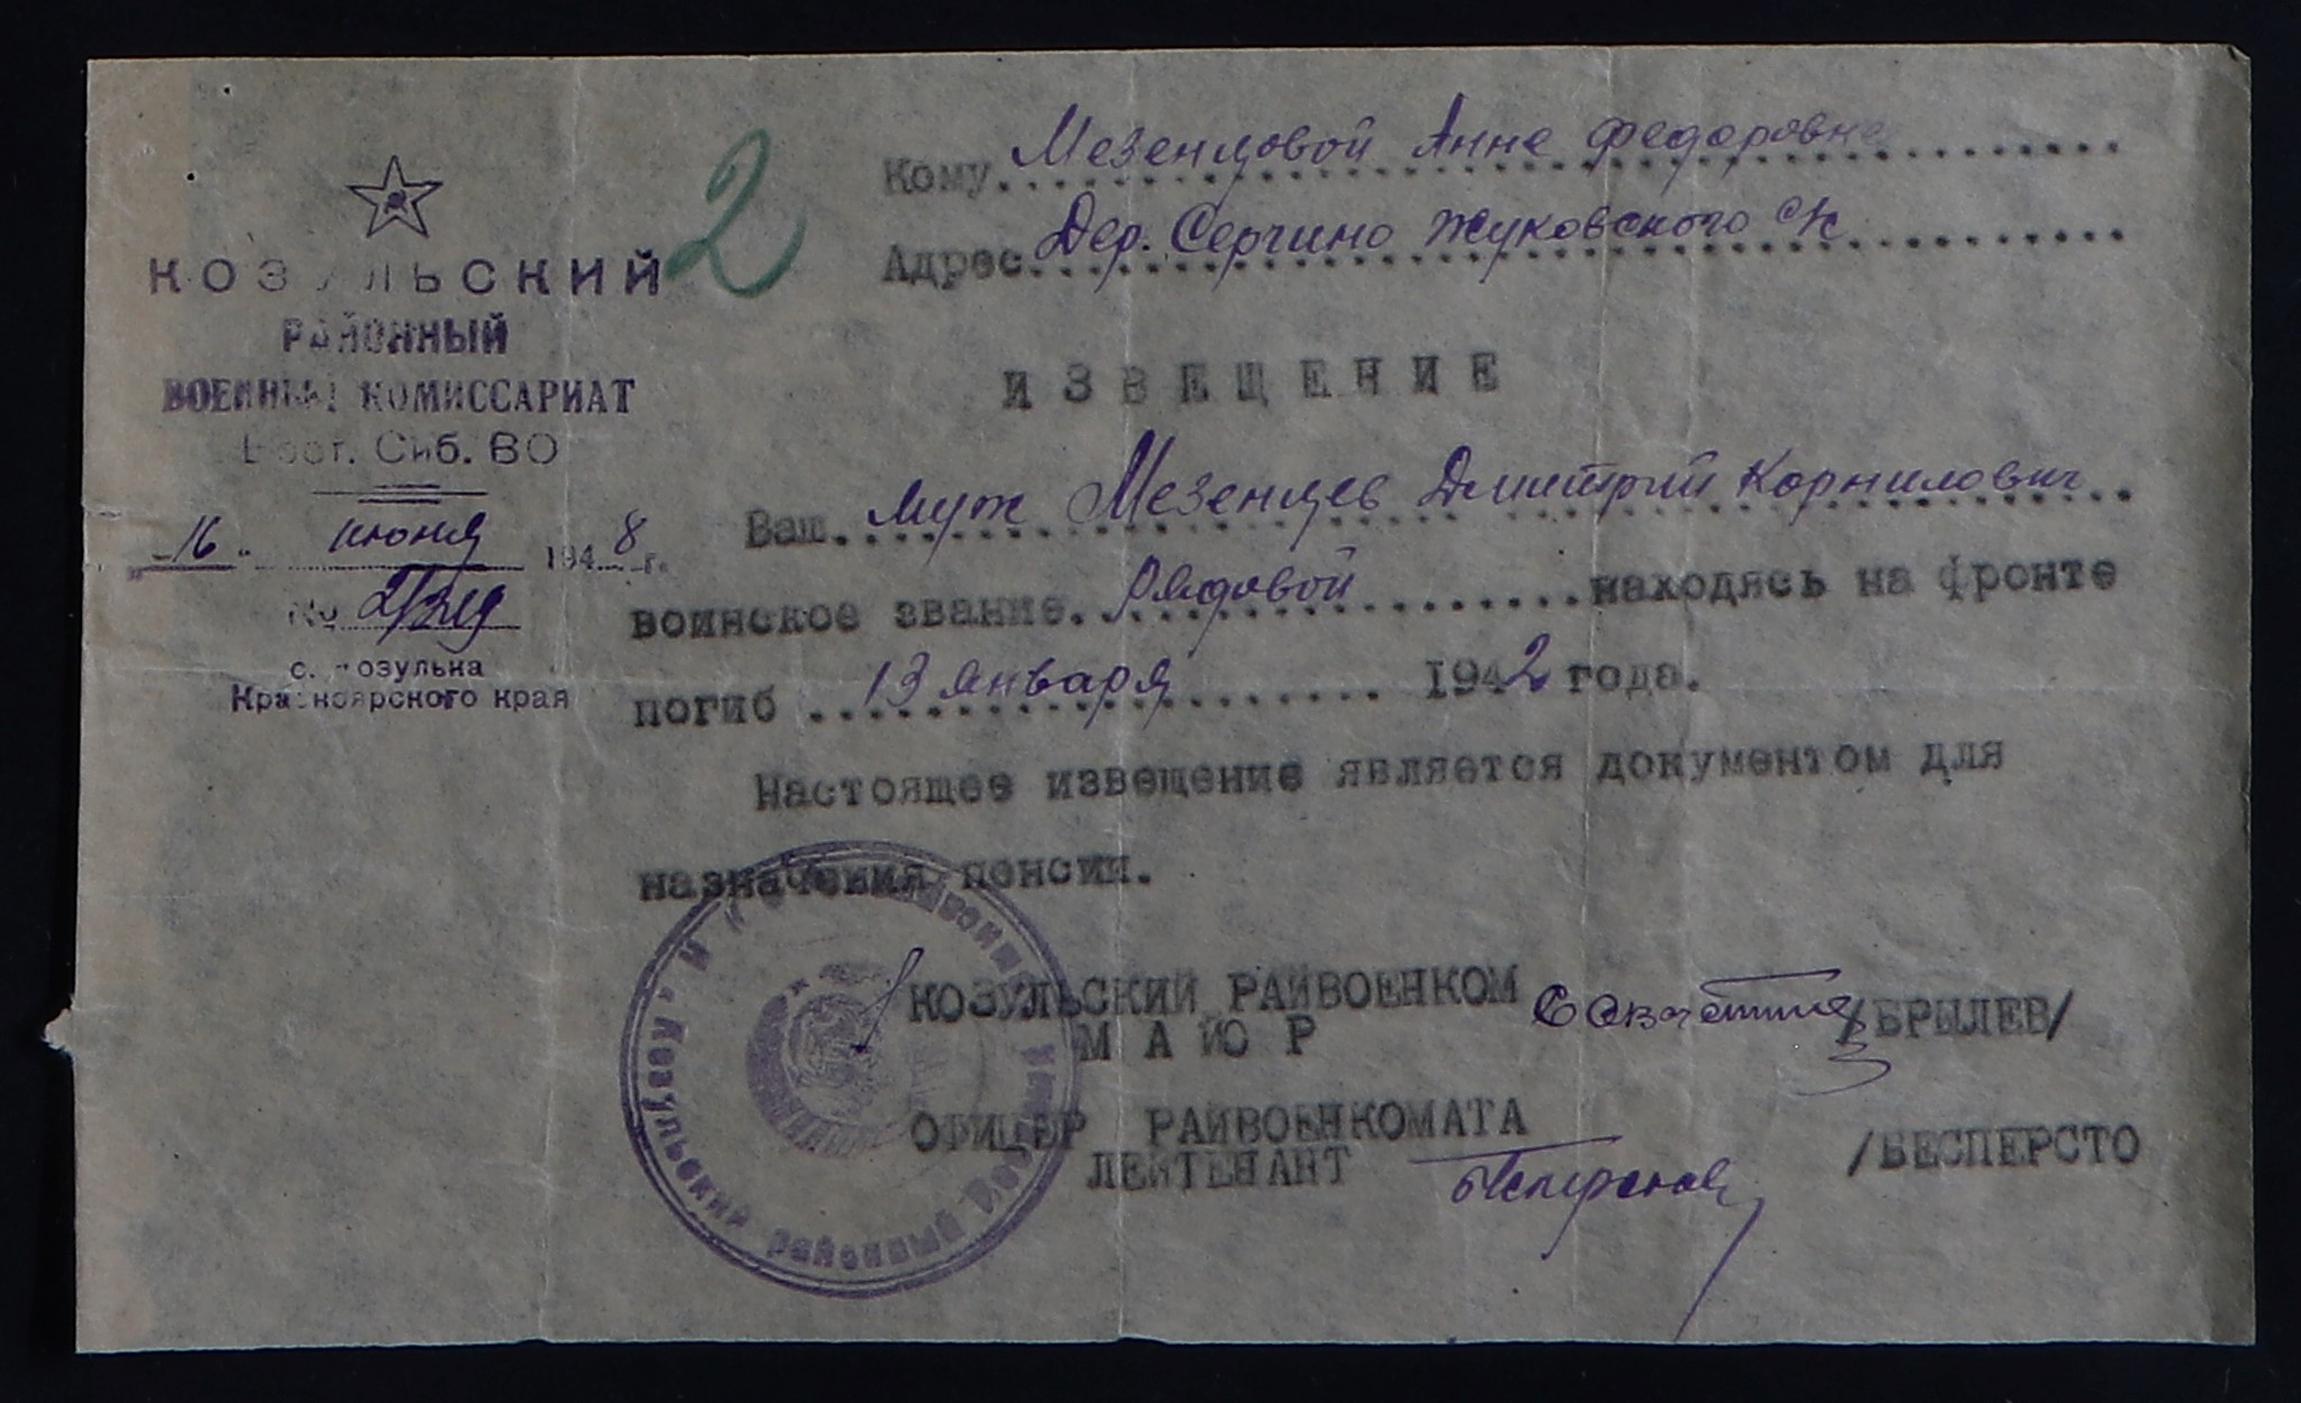 2
КОЗУЛЬСКИЙ
РАЙОННЫЙ
ВОЕННЫЙ КОМИССАРИАТ
Вост. Сиб. ВО
"16" июня 1948 г.
№
с. Козулька
Красноярского края
Кому Мезенцовой Анне Федоровне
Адрес Дер. Серчино Жуковского с/с
ИЗВЕЩЕНИЕ
Ваш муж Мезенцев Дмитрий Корнилович
воинское звание рядовой находясь на фронте
погиб 13 января 1942 года.
Настоящее извещение является документом для
назначения пенсии.
КОЗУЛЬСКИЙ РАЙВОЕНКОМ
МАЙОР /БРЫЛЕВ/
ОФИЦЕР РАЙВОЕНКОМАТА
ЛЕЙТЕНАНТ /БЕСПЕРСТО
Козульский районный